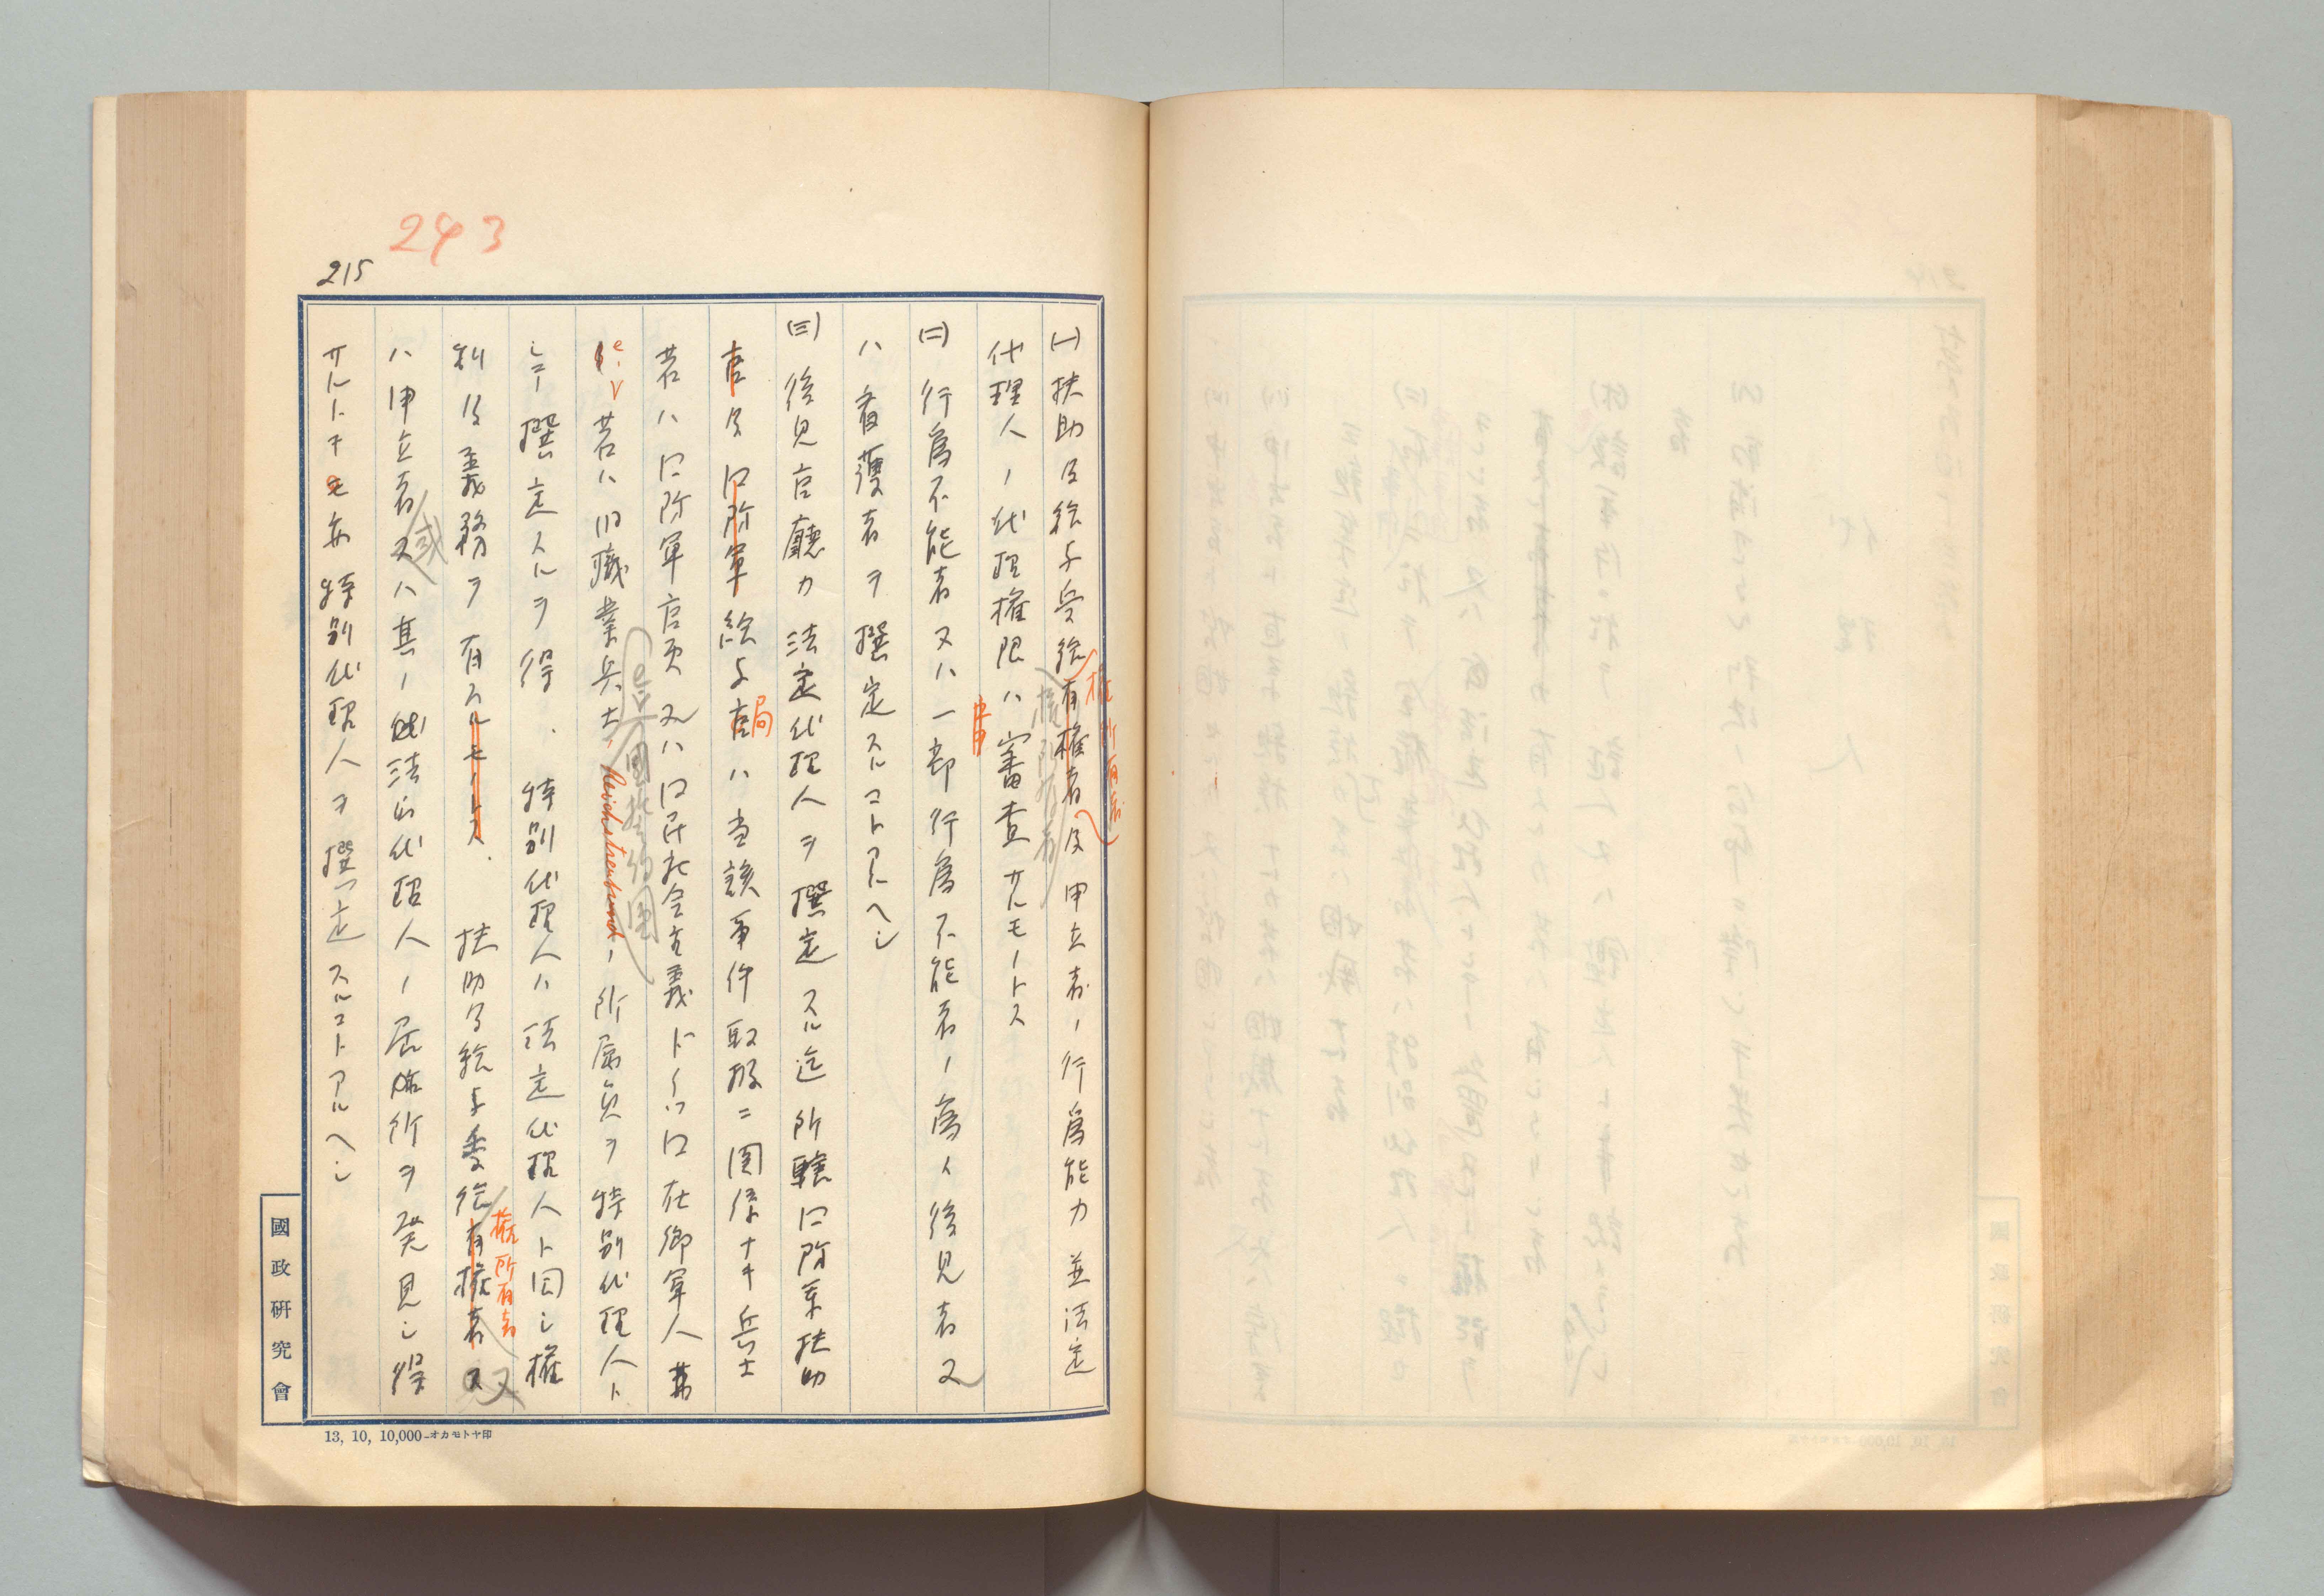 243
215
(一) 扶助及給与受給有権者及申立者ノ行為能力並法定
権所有者
代理人ノ代理権限ハ審査サルモノトス
(二) 行為不能者又ハ一部行為不能者ノ為ノ後見者又
ハ看護者ヲ撰定スルコトアルヘシ
(三) 後見官廳カ法定代理人ヲ撰定スル迄所轄口防軍扶助
官及口防軍給与官ハ当該事件取扱ニ関係ナキ兵士
局
若ハ口防軍官吏又ハ口民社会主義ドイツ口在郷軍人
若ハ旧職業兵士、Reichstreubundノ所属員ヲ特別代理人ト
シテ撰定スルヲ得、特別代理人ハ法定代理人ト同シ権
利及義務ヲ有スルモノトス、扶助及給与受給有権者又
権所有者
又
ハ申立者又ハ其ノ法的代理人ノ居所ヲ発見シ得
或
サルトキモ亦特別代理人ヲ撰定スルコトアルヘシ
國政研究會
13, 10, 10,000-オカモトヤ印